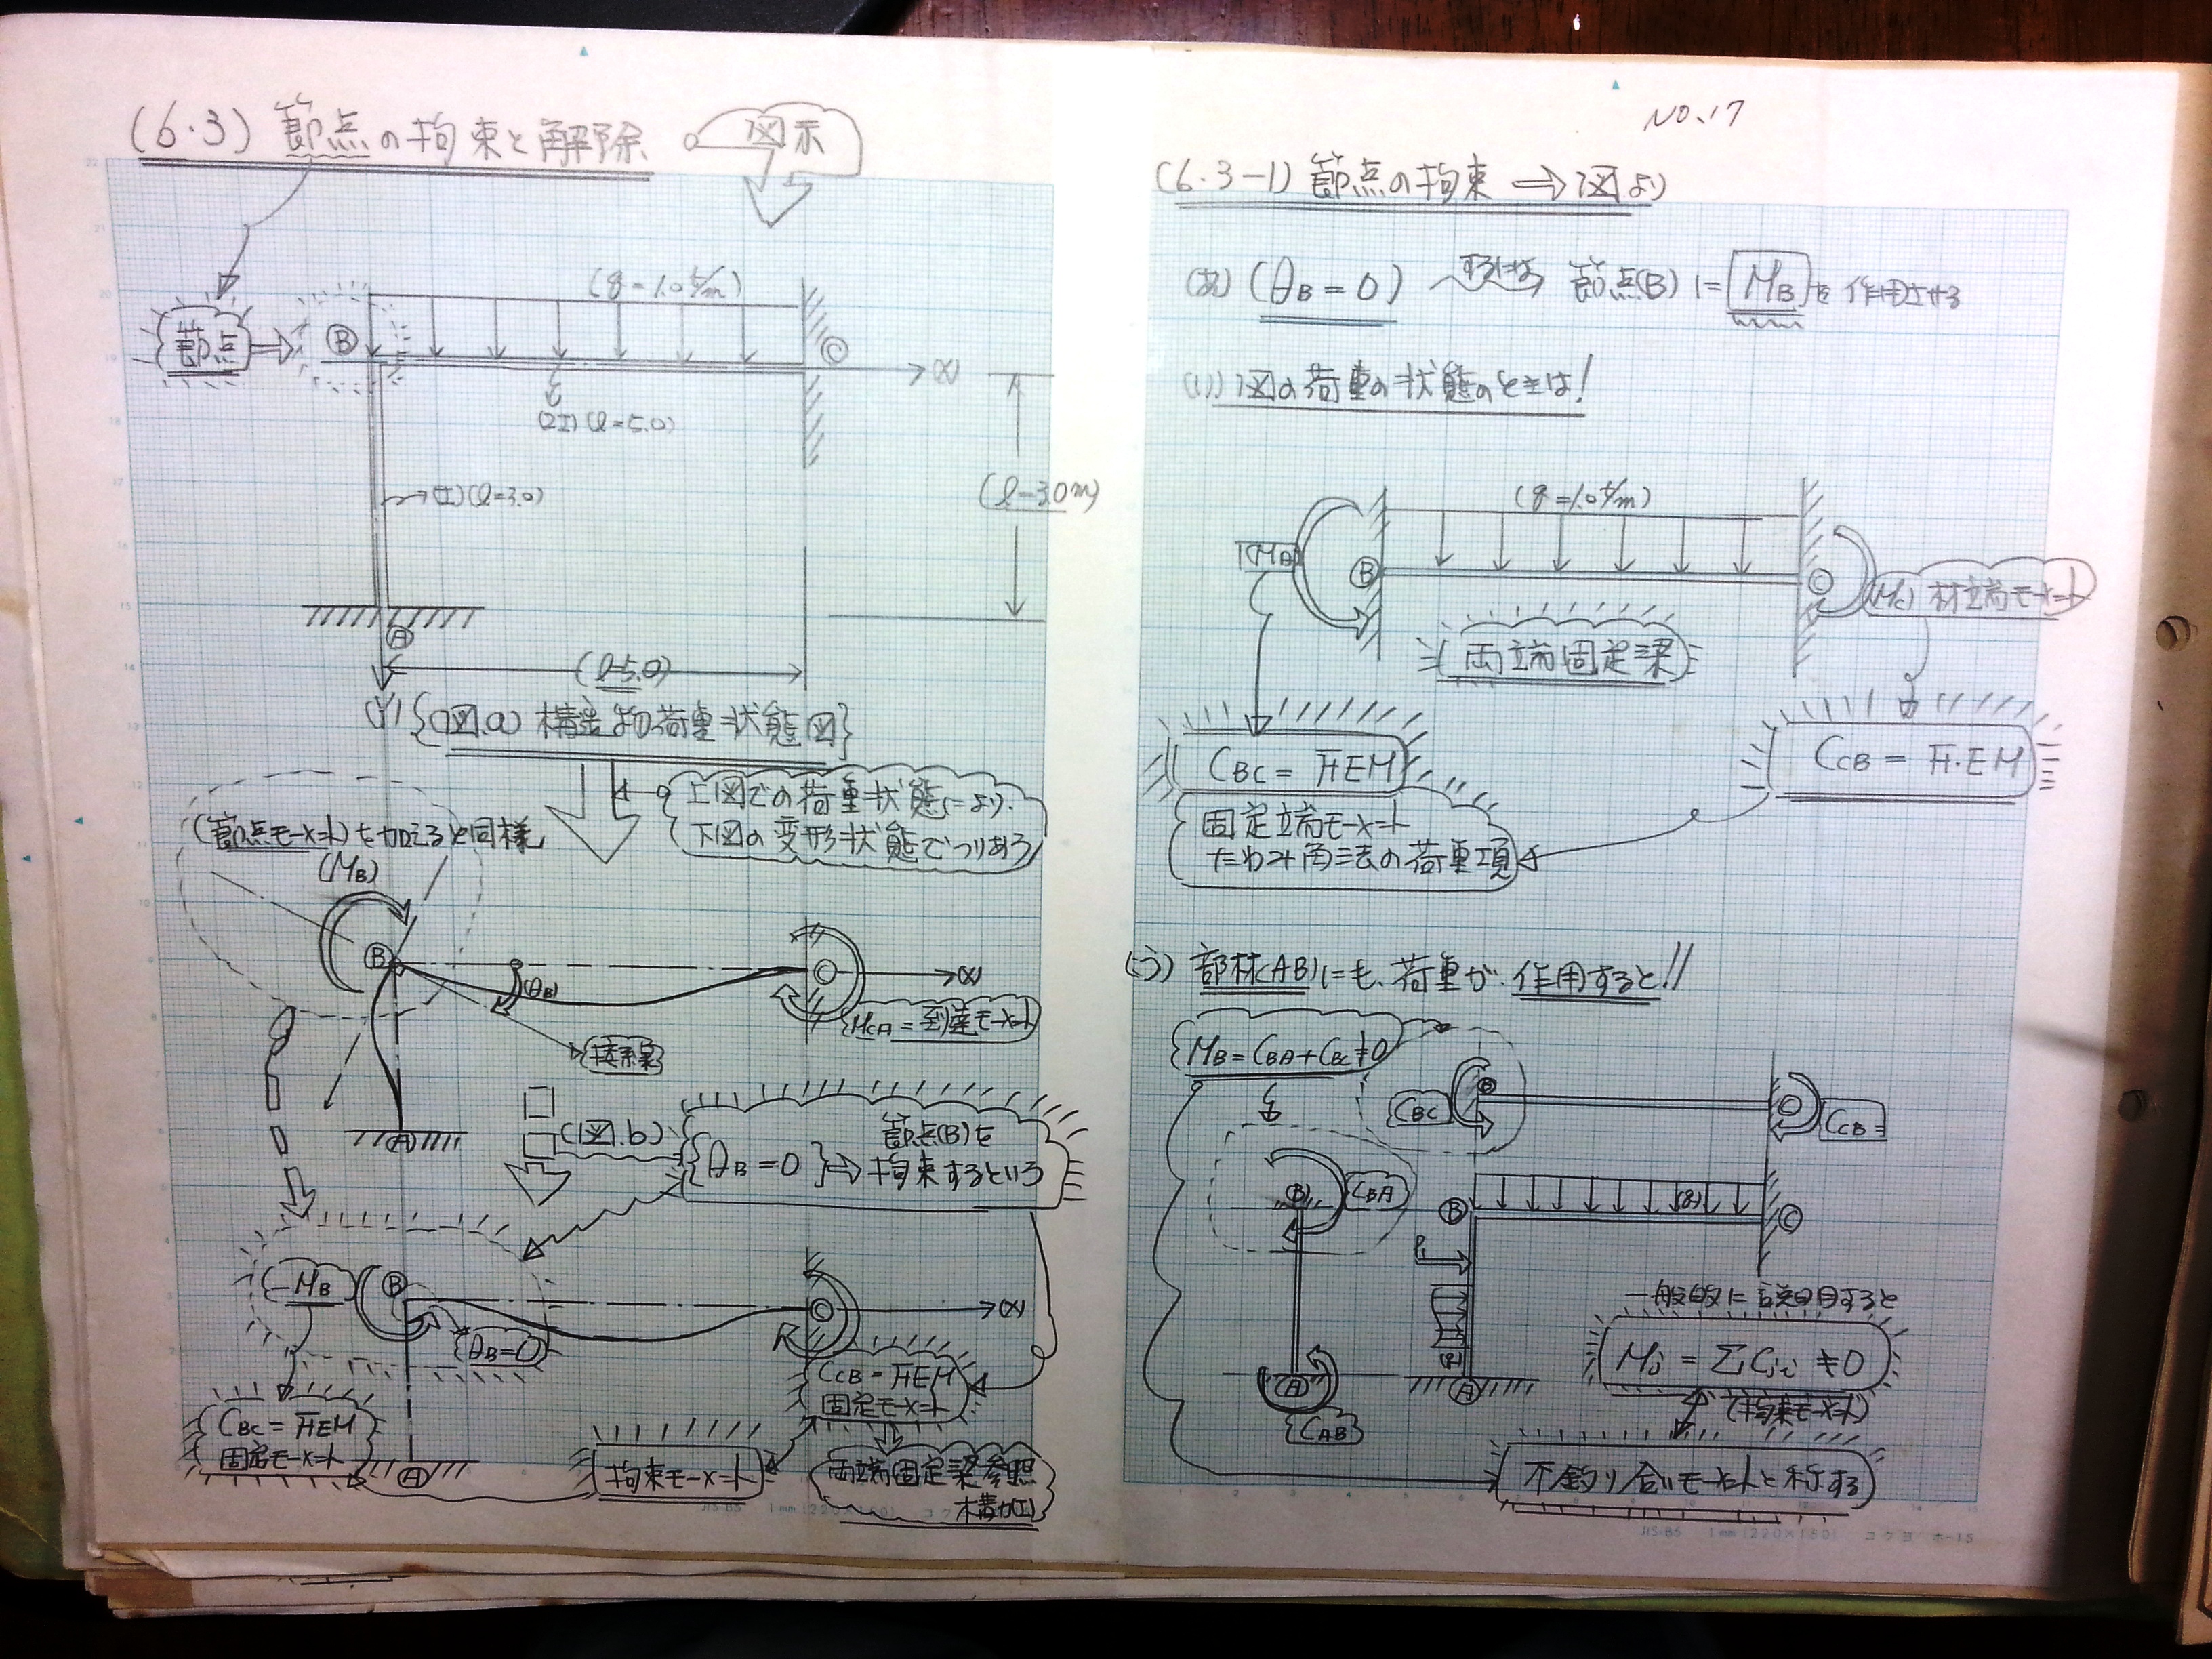 (6.3) 節点の拘束と解除
図示
節点
B
(q=1.0t/m)
C
(x)
(2I)(l=5.0)
(I)(l=3.0)
(l=3.0m)
A
(l=5.0)
(y)
{(図.a) 構造物の荷重状態図}
上図での荷重状態により.
下図の変形状態でつりあう
(節点モーメント)を加えると同様
(MB)
B
(θB)
C
(x)
MCA=到達モーメント
接線
A
(図.b)
節点(B)を
{θB=0}⇒拘束するという
-MB
B
θB=0
C
(x)
CCB=FEM
固定モーメント
CBC=FEM
固定モーメント
A
拘束モーメント
両端固定梁参照
構力(I)
JIS-B5 1mm(220×150)
NO.17
(6.3-1) 節点の拘束 ⇒ 図より
(あ) (θB=0) するには 節点(B)に MB を作用させる
(い) 図の荷重の状態のときは!
(q=1.0t/m)
(MB)
B
C
(Mc) 材端モーメント
両端固定梁
CBC=FEM
CCB=F.EM
固定端モーメント
たわみ角法の荷重項
(う) 部材(AB)にも、荷重が.作用すると!!
MB=CBA+CBC≠0
CBC
B
C
CCB=
B
CBA
B
(q)
C
P
A
CAB
A
一般的に説明すると
Mi=ΣCji≠0
(拘束モーメント)
不釣り合いモーメントと称する
JIS-B5 1mm(220×150) コクヨ ホ-15